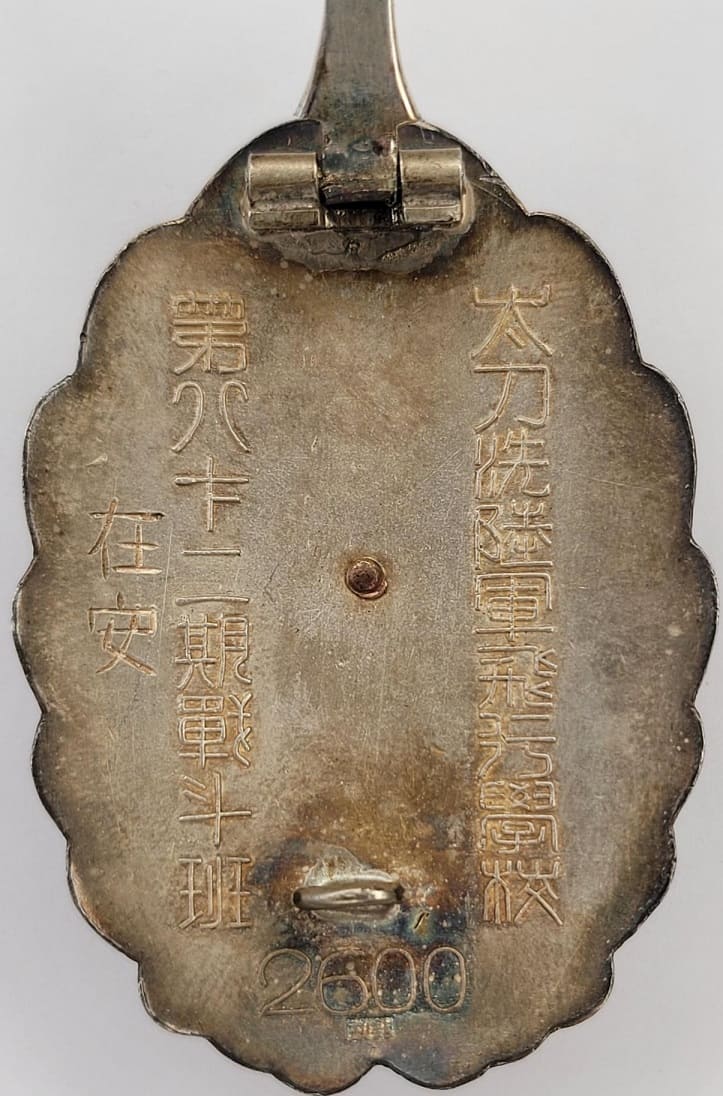 太刀洗陸軍飛行學校
第八十二期戰斗班
在安
2600